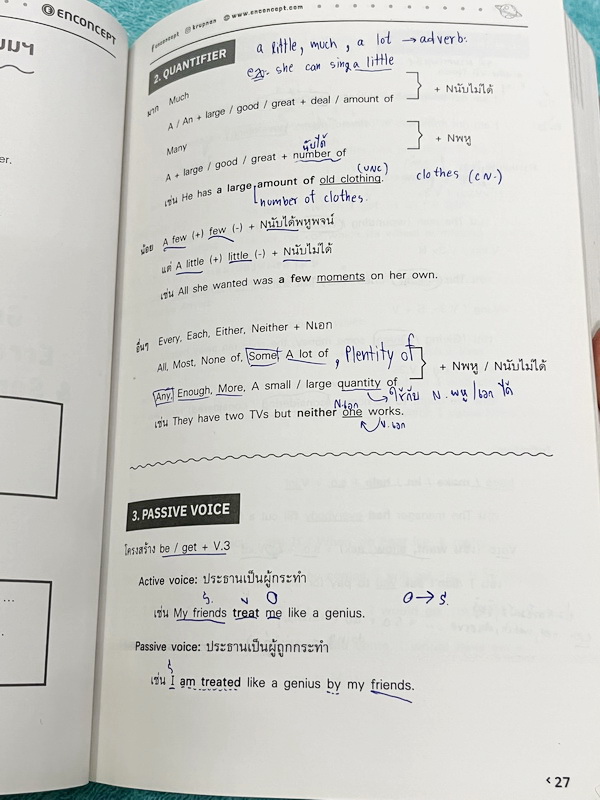 ENCONCEPT
enconcept krupnan www.enconcept.com
a little, much, a lot → adverb.
2. QUANTIFIER
ex. she can sing a little
มาก Much
A / An + large / good / great + deal / amount of
+ Nนับไม่ได้
Many
นับได้
A + large / good / great + number of
+ Nพหู
(UNC)
เช่น He has a large amount of old clothing.
clothes (CN.)
number of clothes.
น้อย A few (+) few (-) + Nนับได้พหูพจน์
แต่ A little (+) little (-) + Nนับไม่ได้
เช่น All she wanted was a few moments on her own.
อื่นๆ Every, Each, Either, Neither + Nเอก
All, Most, None of, Some, A lot of , Plentity of
+ Nพหู / Nนับไม่ได้
Any, Enough, More, A small / large quantity of
N.เอก ใช้กับ N. พหู/เอก ได้
เช่น They have two TVs but neither one works.
V.เอก
3. PASSIVE VOICE
โครงสร้าง be / get + V.3
Active voice: ประธานเป็นผู้กระทำ
S. V O O → S.
เช่น My friends treat me like a genius.
Passive voice: ประธานเป็นผู้ถูกกระทำ
S
เช่น I am treated like a genius by my friends.
27
er.